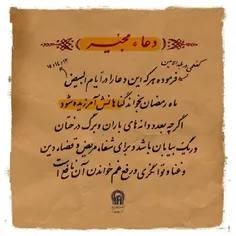 « دعاء مجیر »
کفعمی در بلد الامین
فرموده هر که این دعا را در ایام البیض
ماه رمضان بخواند گناهانش آمرزیده شود
اگر چه بعدد دانه های باران و برگ درختان
و ریگ بیابان باشد و برای شفاء مریض و قضاء دین
و غنا و توانگری و رفع غم خواندن آن نافع است